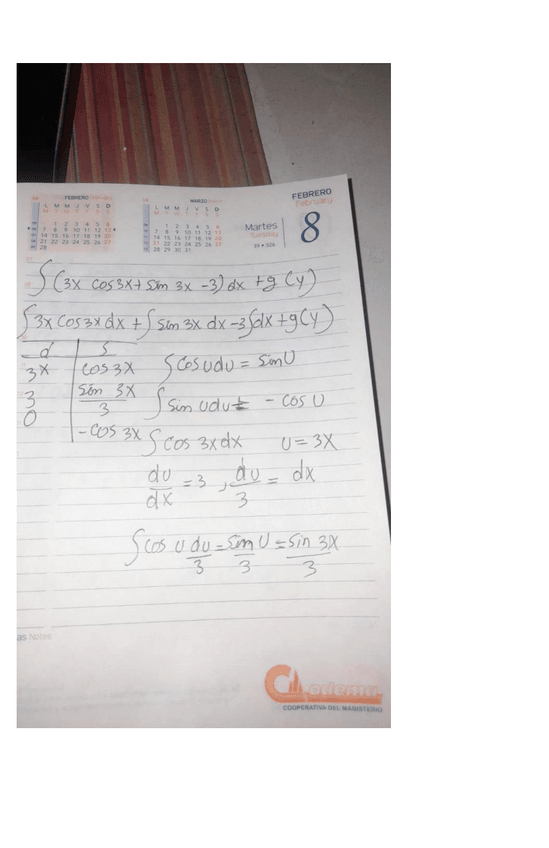 FEBRERO
L M M J V S D
1 2 3 4 5 6
7 8 9 10 11 12 13
14 15 16 17 18 19 20
21 22 23 24 25 26 27
28
MARZO
L M M J V S D
1 2 3 4 5 6
7 8 9 10 11 12 13
14 15 16 17 18 19 20
21 22 23 24 25 26 27
28 29 30 31
Martes
Tuesday
39 • 326
FEBRERO
February
8
∫(3x cos3x + sin 3x -3) dx + g(y)
∫3x cos3x dx + ∫ sin 3x dx -3∫dx + g(y)
d | S
3x | cos 3x ∫cos u du = sin U
3 | sin 3x / 3 ∫ sin u du = - cos U
0 | - cos 3x ∫ cos 3x dx U = 3X
du/dx = 3 , du/3 = dx
∫ cos u du/3 = sin U/3 = sin 3x/3
as Notes
Cadema
COOPERATIVA DEL MAGISTERIO